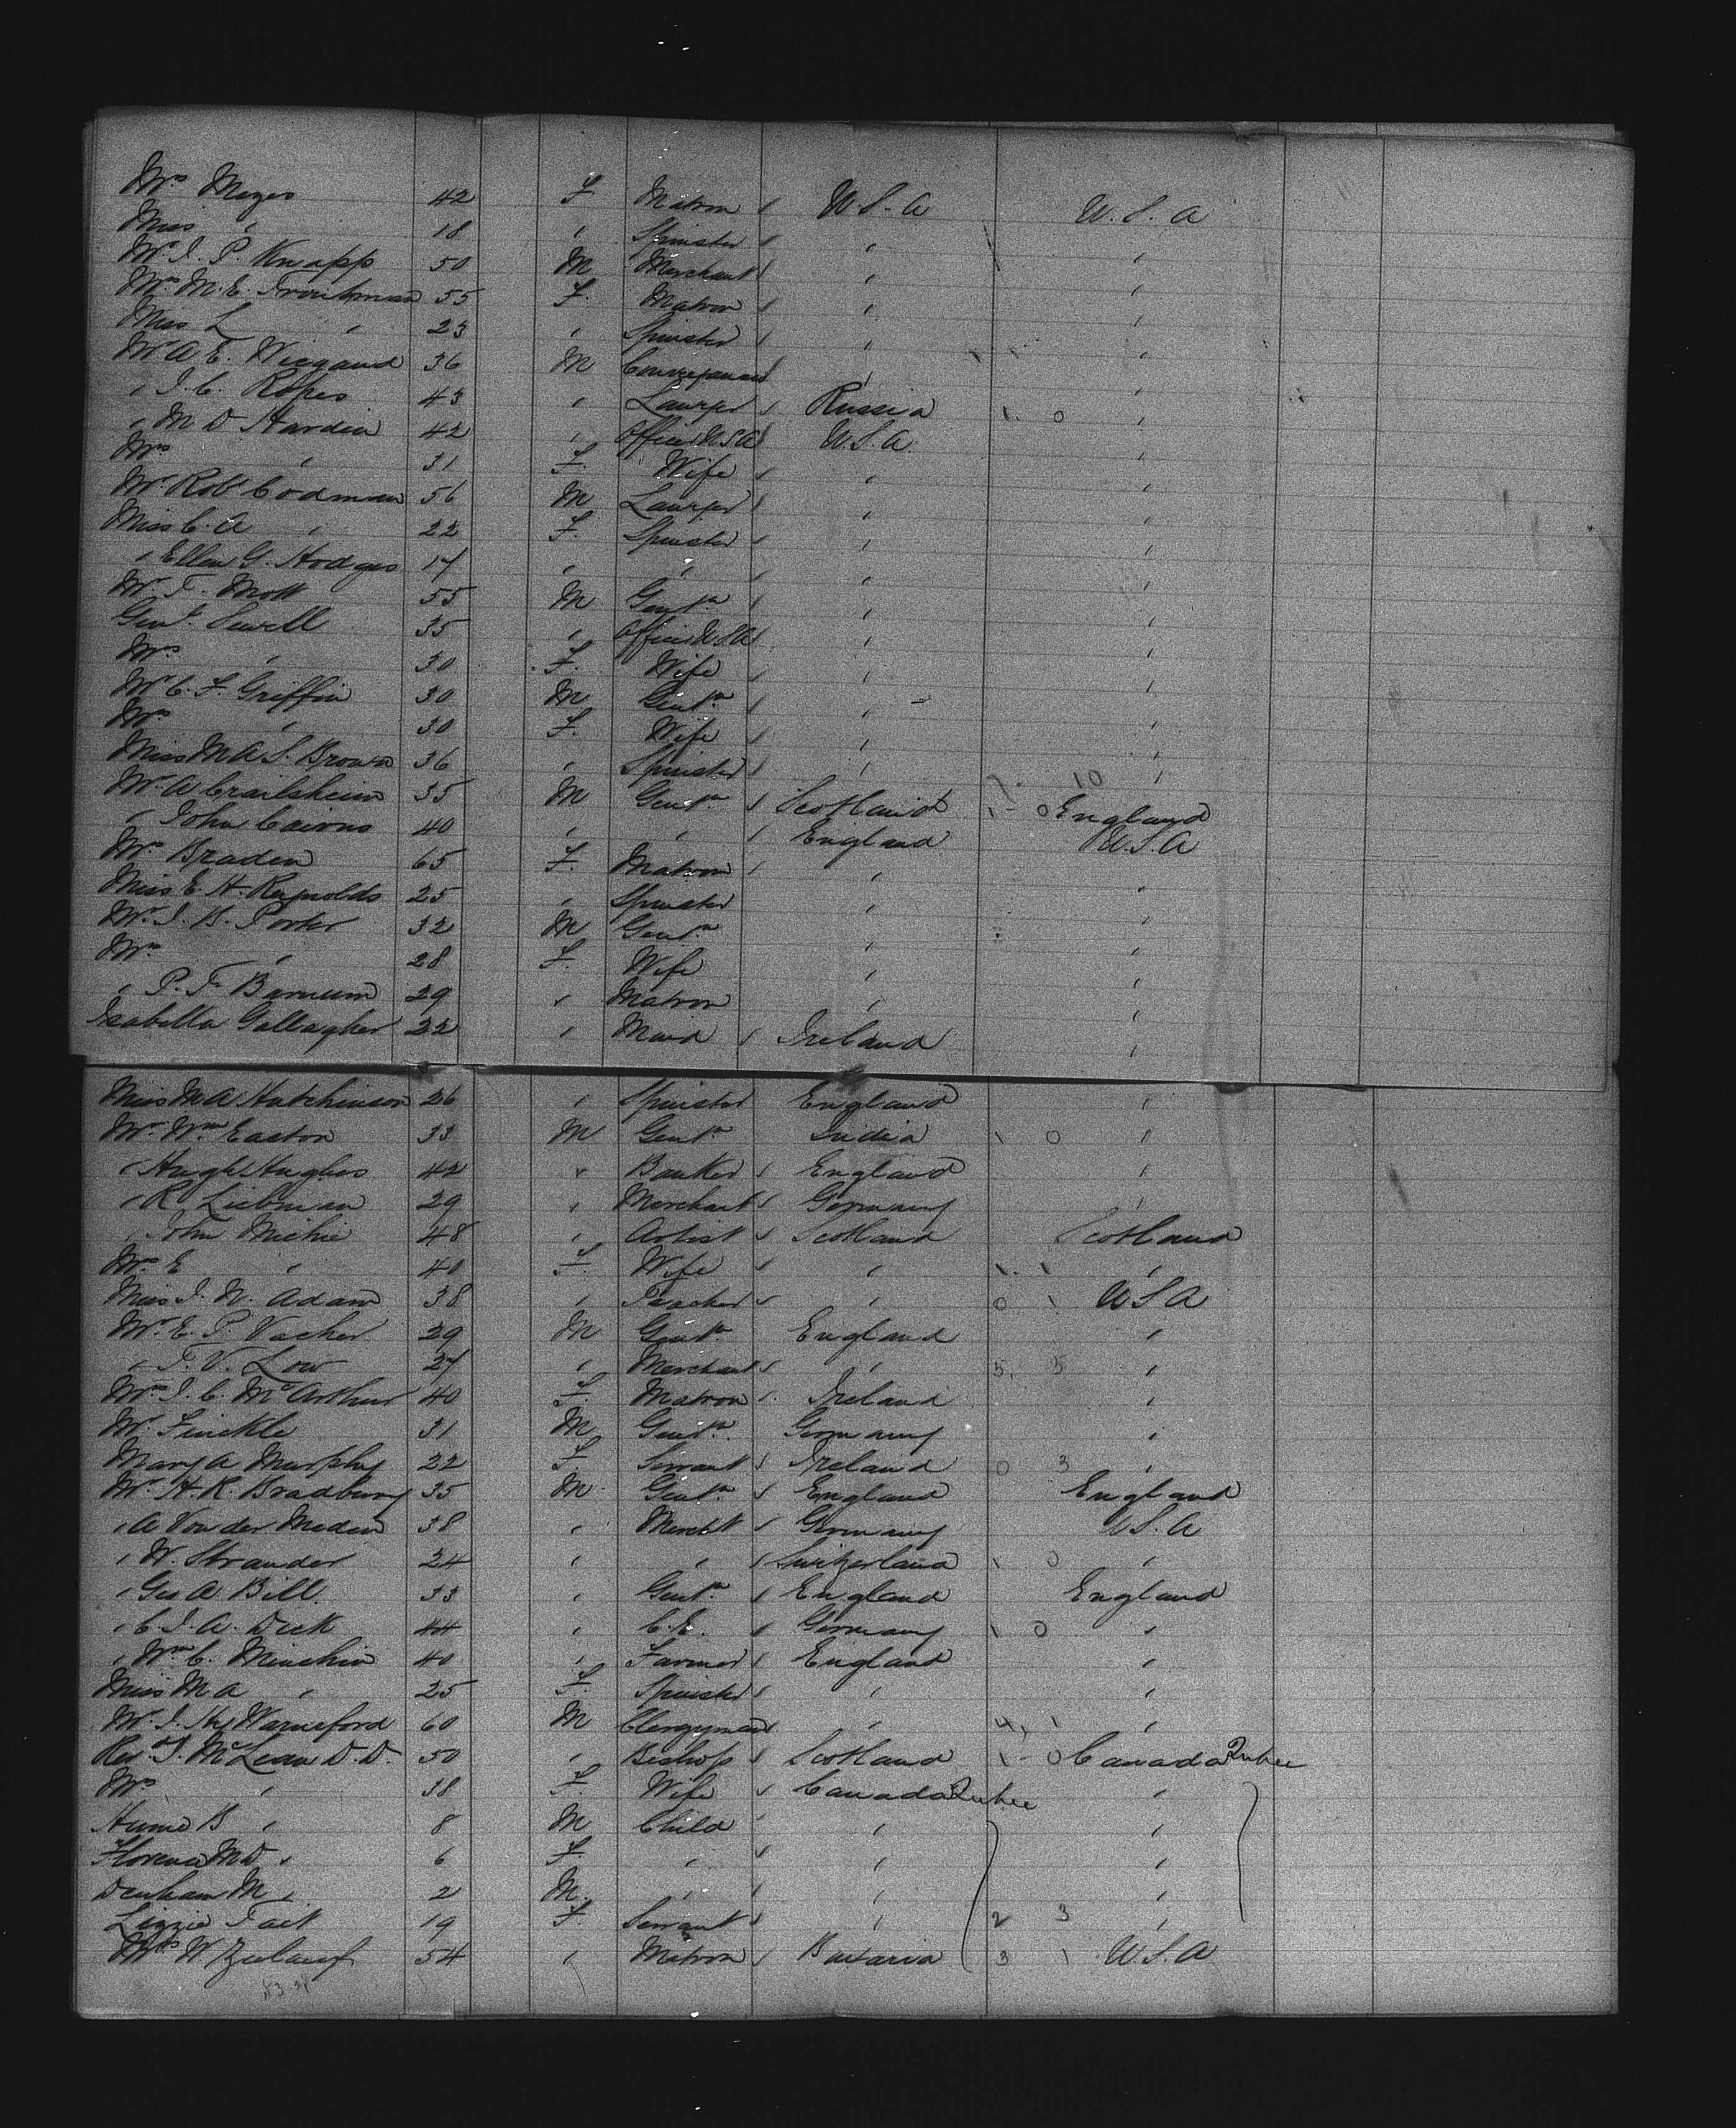 Mrs Mezes 42 F. Matron U.S.A U.S.A
Miss " 18 " Spinster " "
Mr. J. P. Knapp 50 M Merchant " "
Mrs M. E. Troutman 55 F. Matron " "
Miss L " 23 " Spinster " "
Mr A E. Wiegand 36 M " "
" J. C. Ropes 43 " Lawyer Russia 1. 0 "
" M D Hardin 42 " Officer U.S.A U.S.A. "
Mrs " 31 F. Wife " "
Mr Robt Codman 56 M Lawyer " "
Miss C. A " 22 F. Spinster " "
" Ellen G. Hodges 17 " " " "
Mr. T. Mott 55 M Gentn " "
Genl. Sewell 35 " Officer U.S.A " "
Mrs " 30 F. Wife " "
Mr C. F. Griffin 30 M Gentn " "
Mrs " 30 F. Wife " "
Miss M A S. Brown 36 " Spinster " "
7. 10
Mr. A Crailsheim 35 M Gentn Scotland 1 - 0 England
" John Cairns 40 " " England U.S.A
Mrs Braden 65 F. Matron " "
Miss E. H. Reynolds 25 " Spinster " "
Mr. J. B. Porter 32 M Gentn " "
Mrs " 28 F. Wife " "
" P. T. Barnum 29 " Matron " "
Isabella Gallagher 22 " Maid Ireland "
Miss M A Hutchinson 26 " Spinster England "
Mr. Wm Easton 33 M Gentn India 1 0 "
" Hugh Hughes 42 " Banker England "
" R. Liebman 29 " Merchant Germany "
" John Michie 48 " Artist Scotland Scotland
Mrs E " 40 F. Wife " 1. 1 "
Miss J. W. Adam 38 " Teacher " 0 1 U S A
Mr. E. P. Vacher 29 M Gentn England "
" T. V. Low 27 " Merchant " 5, 5 "
Mrs J. C. McArthur 40 F. Matron Ireland "
Mr. Finckle 31 M Gentn Germany "
Mary A Murphy 22 F. Servant Ireland 0 3 "
Mr. H. R. Bradbury 35 M. Gentn England England
" A Von der Meden 38 " Mercht Germany U.S.A
" W. Strauder 24 " " Switzerland 1 0 "
" Geo A Bill. 33 " Gentn England England
" C. J. A. Dick 44 " C.E. Germany 1 0 "
" Wm C. Minchin 40 " Farmer England "
Miss M A " 25 F. Spinster " "
Mr. J. Hy Warneford 60 M Clergyman " 4, 1 "
Rev. J. McLean D.D. 50 " Bishop Scotland 1 - 0 Canada Quebec
Mrs " 38 F. Wife Canada Quebec "
Hume B " 8 M Child " "
Florence M D " 6 F. " " "
Denham M " 2 M. " " "
Lizzie Tait 19 F Servant " 2 3 "
Mrs W Zulauf 54 " Matron Bavaria 3 1 U.S.A